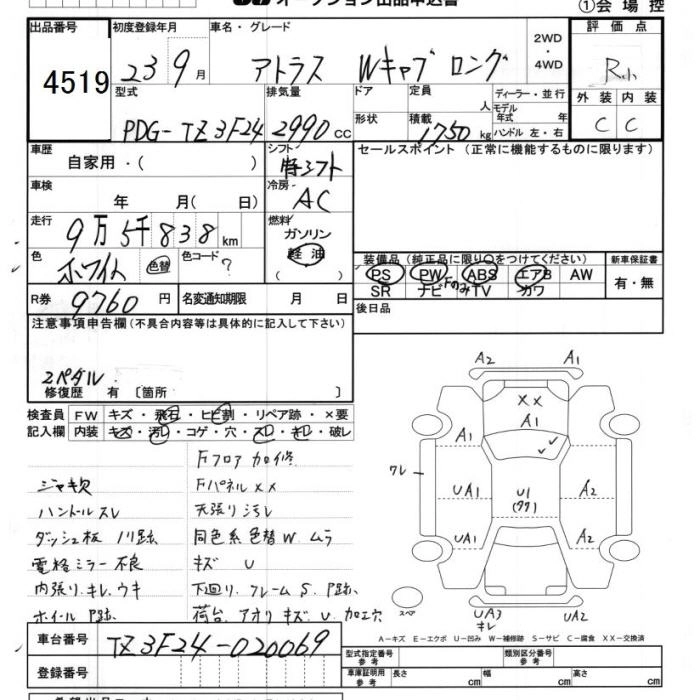 オークション出品申込書
①会場控
出品番号
4519
初度登録年月
23 9月
車名・グレード
アトラス Wキャブ ロング
2WD
・
4WD
評価点
R小
型式
PDG-TZ3F24
排気量
2990cc
ドア
形状
定員
人
積載
1750kg
ディーラー・並行
モデル年式 年
ハンドル 左・右
外装 内装
C C
車歴
自家用・( )
シフト
セールスポイント (正常に機能するものに限ります)
車検
年 月( 日)
冷房
AC
走行
9万5千838km
燃料
ガソリン
軽油
( )
色
ホワイト 色替
色コード ?
装備品 (純正品に限り○をつけてください)
新車保証書
PS PW ABS エアB AW
有・無
SR ナビ Fのみ TV カワ
R券
9760円
名変通知期限 月 日
後日品
注意事項申告欄(不具合内容等は具体的に記入して下さい)
2ペダル
修復歴 有 [箇所 ]
検査員
記入欄
FW キズ・飛石・ヒビ割・リペア跡・×要
内装 キズ・汚レ・コゲ・穴・スレ・キレ・破レ
Fフロア 加修
ジャキ欠
Fパネル XX
ハンドルスレ
天張り汚レ
ダッシュ板 ハリ跡
同色系色替W ムラ
電格ミラー不良
キズ U
内張り キレ、ウキ
下回リ、フレーム S、P跡
ホイール P跡
荷台、アオリ キズ U 加工穴
A2 A1
XX
A1
A1
ワレ
UA1
U1
A2
A2
UA1
スペ
UA3
キレ
UA2
A-キズ E-エクボ U-凹み W-補修跡 S-サビ C-腐食 XX-交換済
車台番号
TZ3F24-020069
登録番号
型式指定番号
参考
類別区分番号
参考
車庫証明用
参考
長さ cm
幅 cm
高さ cm